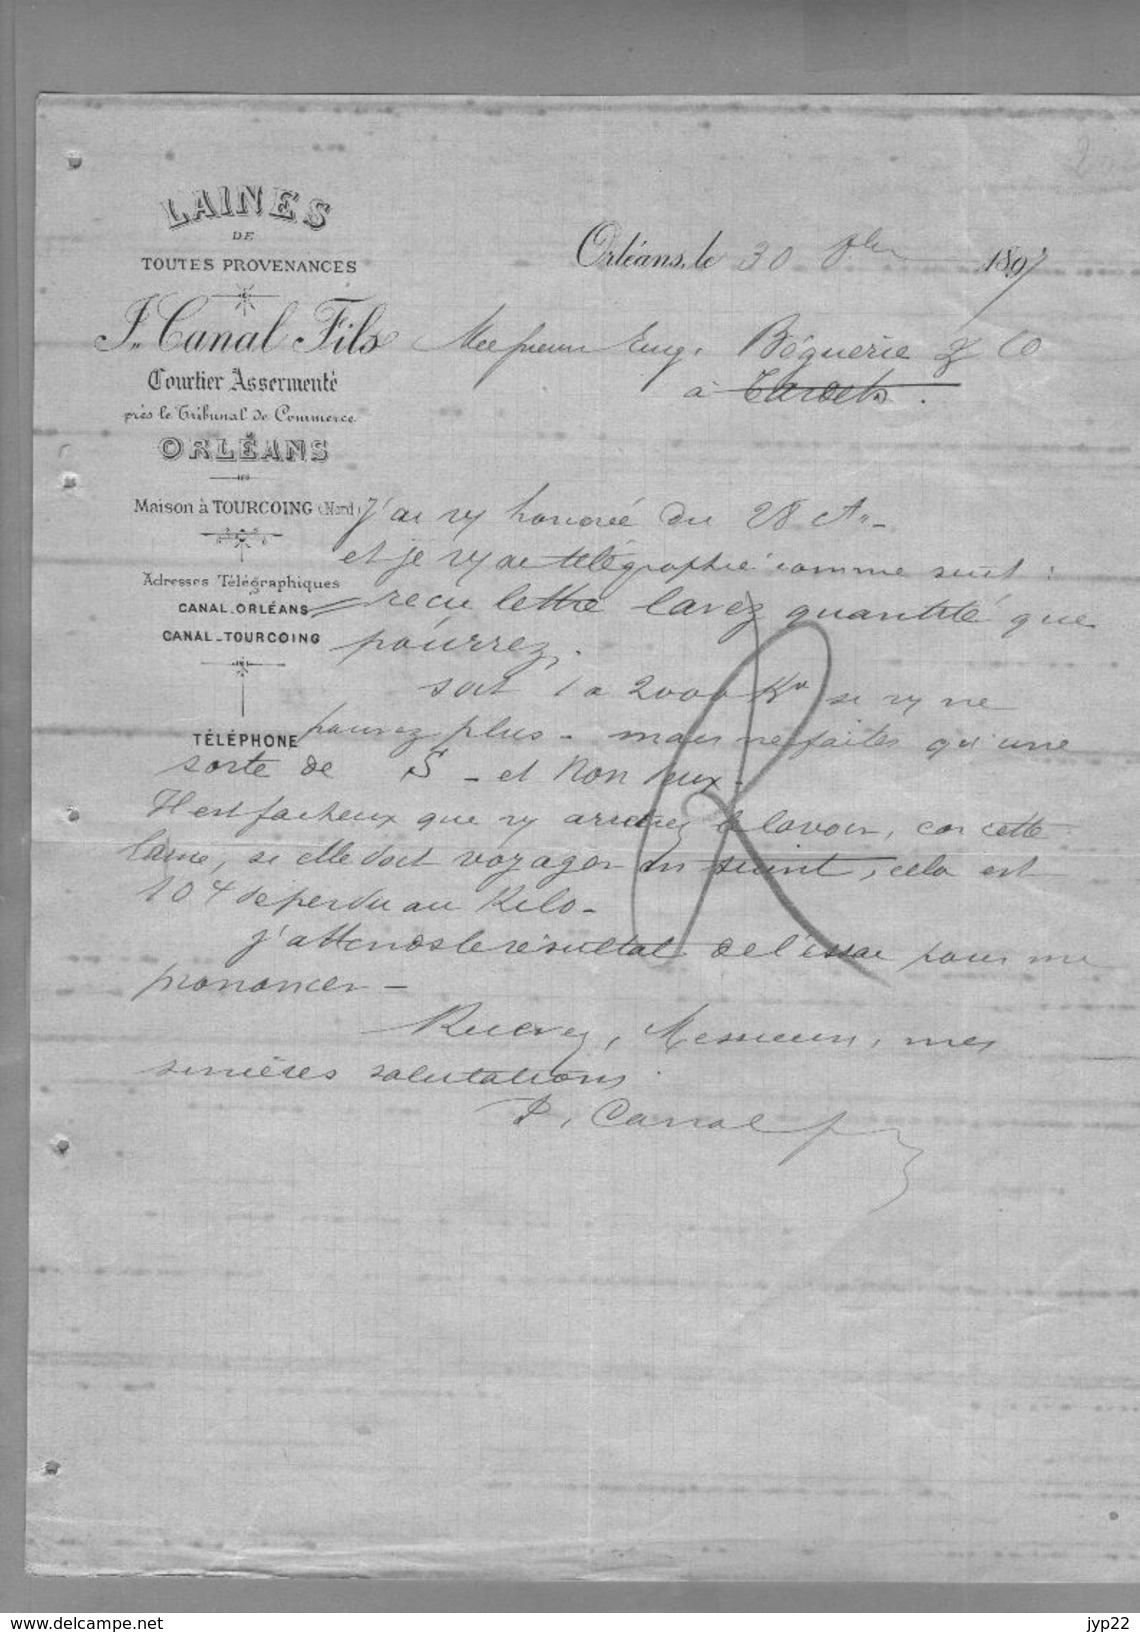 LAINES
DE
TOUTES PROVENANCES
J. Canal Fils
Courtier Assermenté
près le Tribunal de Commerce
ORLÉANS
Maison à TOURCOING (Nord)
Adresses Télégraphiques
CANAL-ORLÉANS
CANAL-TOURCOING
TÉLÉPHONE
Orléans, le 30 1897
Messieurs Eug. Béguerie & Co
à Tardets.
J'ai honorée du 28 Ct
et je ai télégraphié comme suit :
recu lettre lavez quantité que
pourrez.
soit 1 a 2000 Ko si ne
pouvez plus - mais ne faites qu'une
sorte de S - et non deux.
Il est facheux que le lavoir, car cette
laine, si elle doit voyager en suint, cela est
10 de perdu au Kilo -
j'attends le résultat de l'essai pour me
prononcer -
Recevez, Messieurs, mes
sincères salutations.
J. Canal f
www.delcampe.net
jyp22